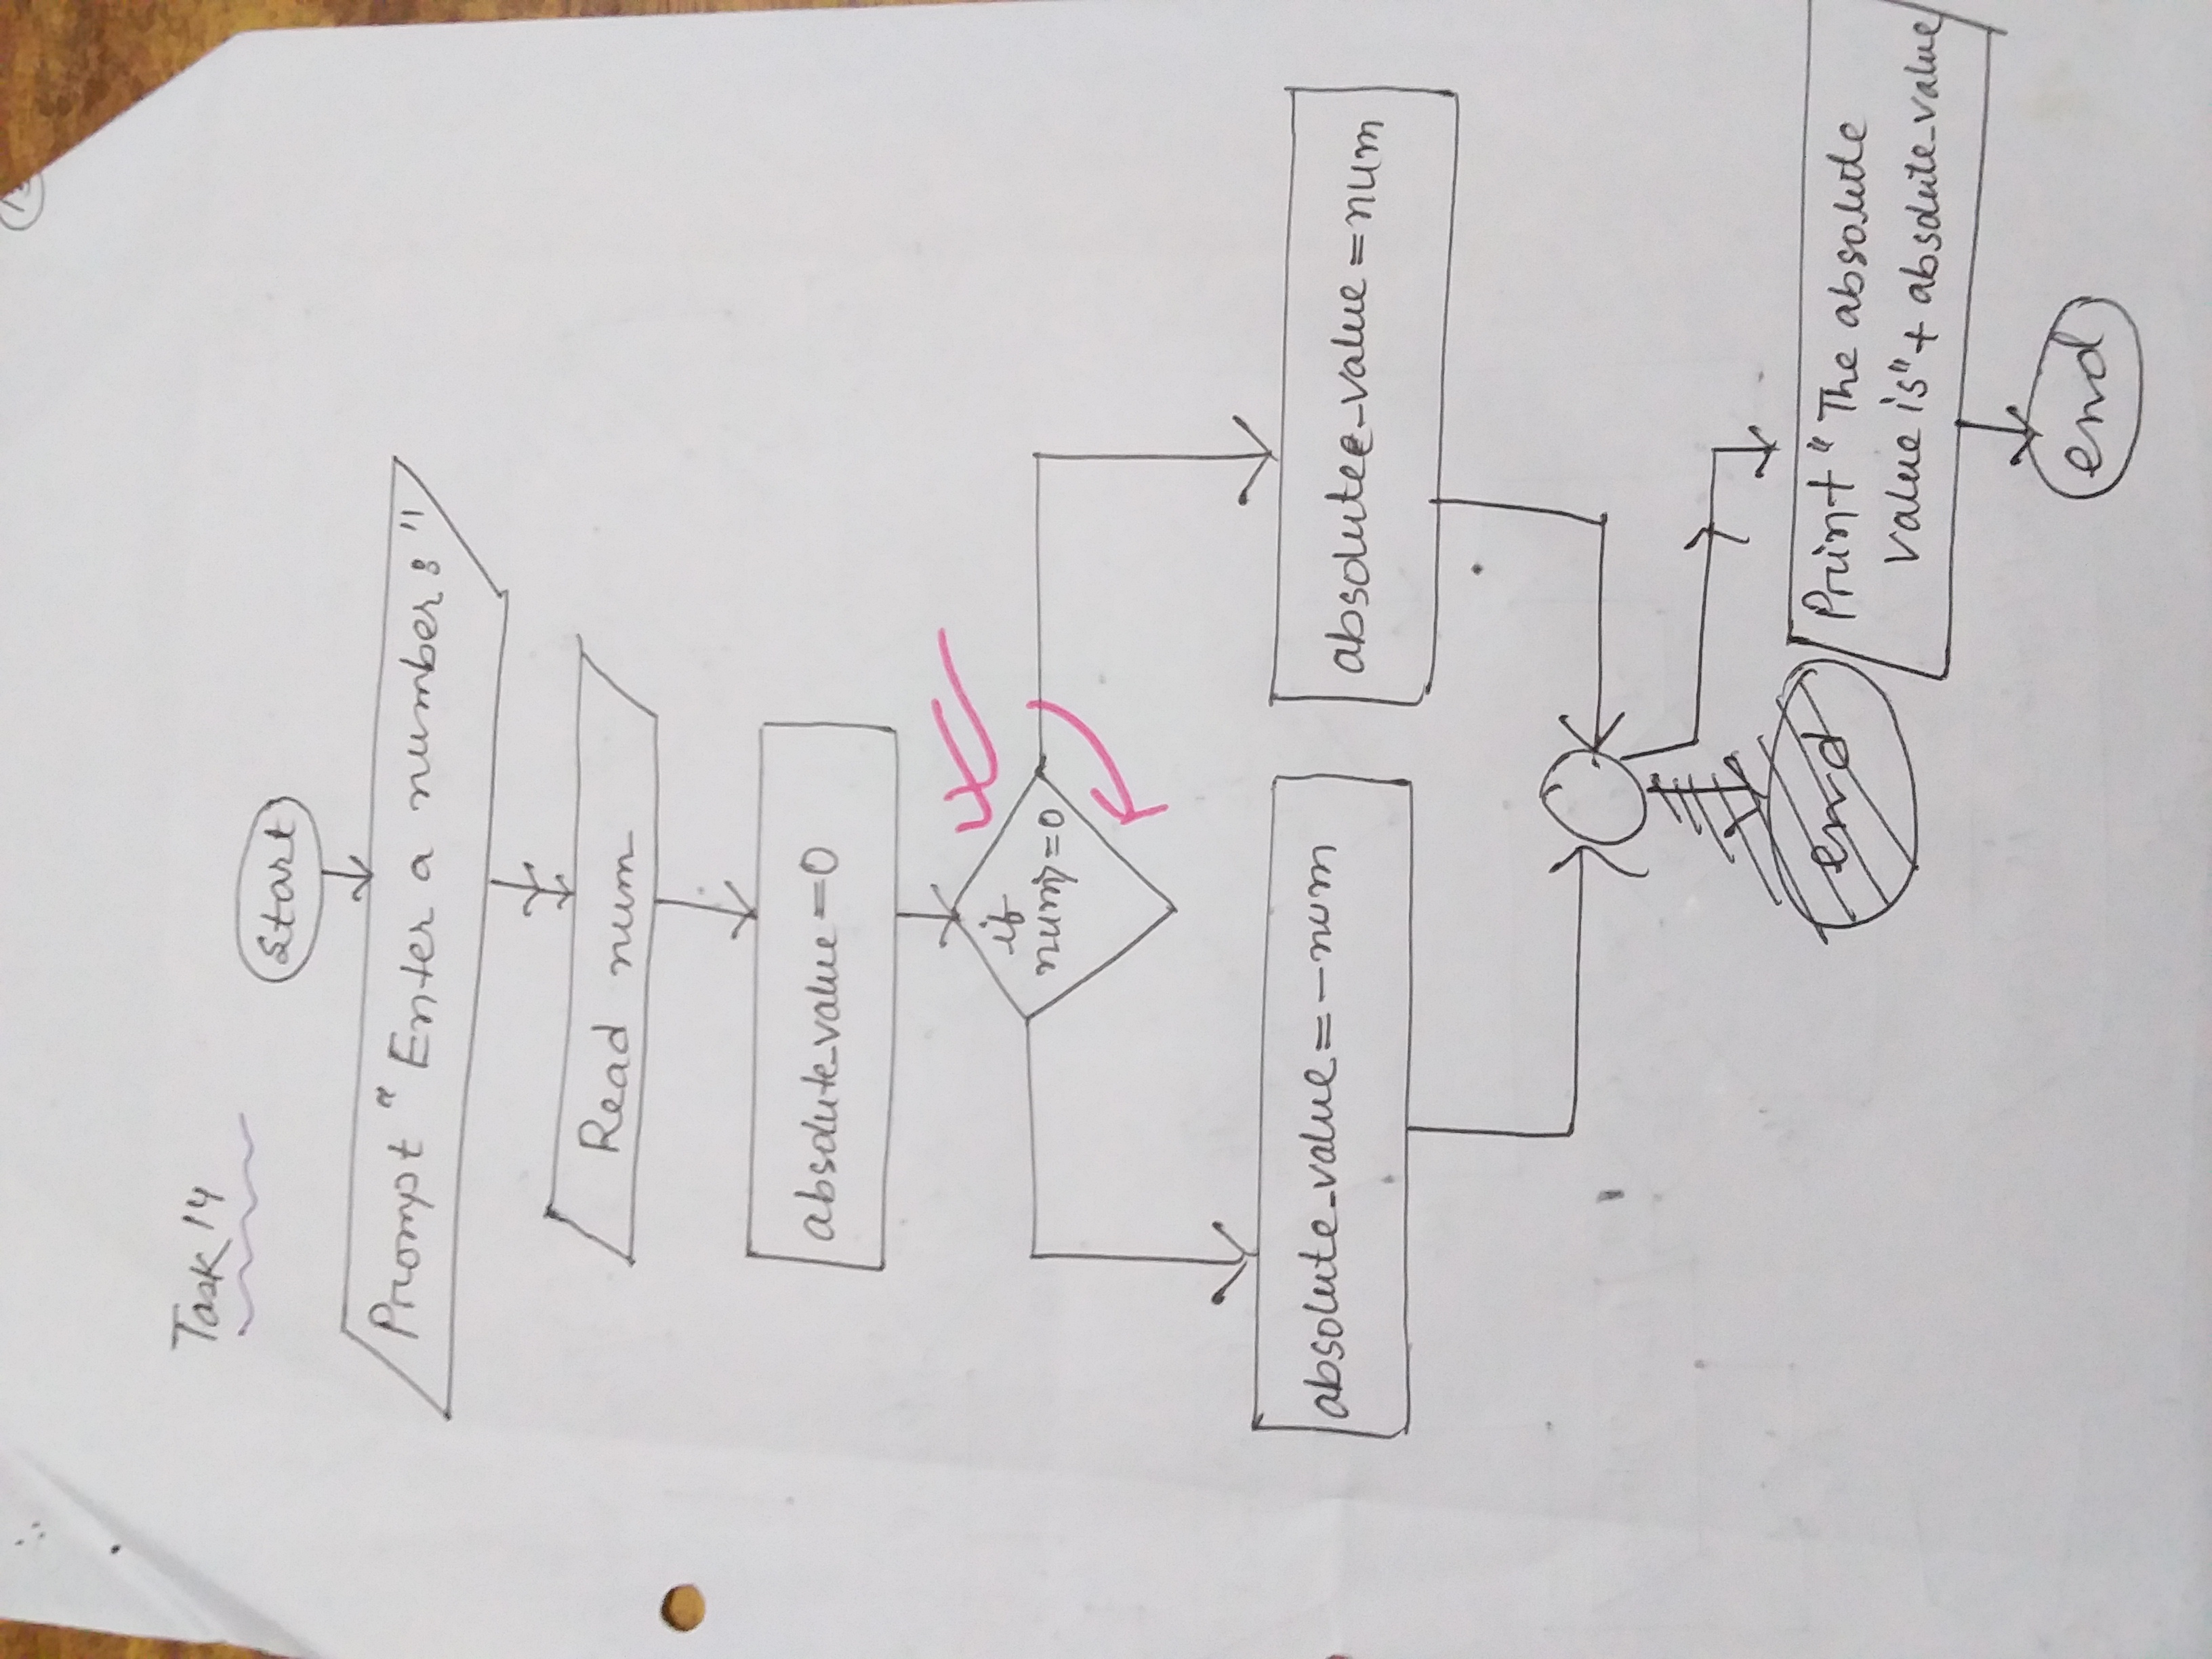 Task 14
Start
Prompt "Enter a number:"
Read num
absolute_value=0
if
num>=0
absolute_value=-num
absolutee_value=num
end
Print "The absolute
value is"+ absolute_value
end